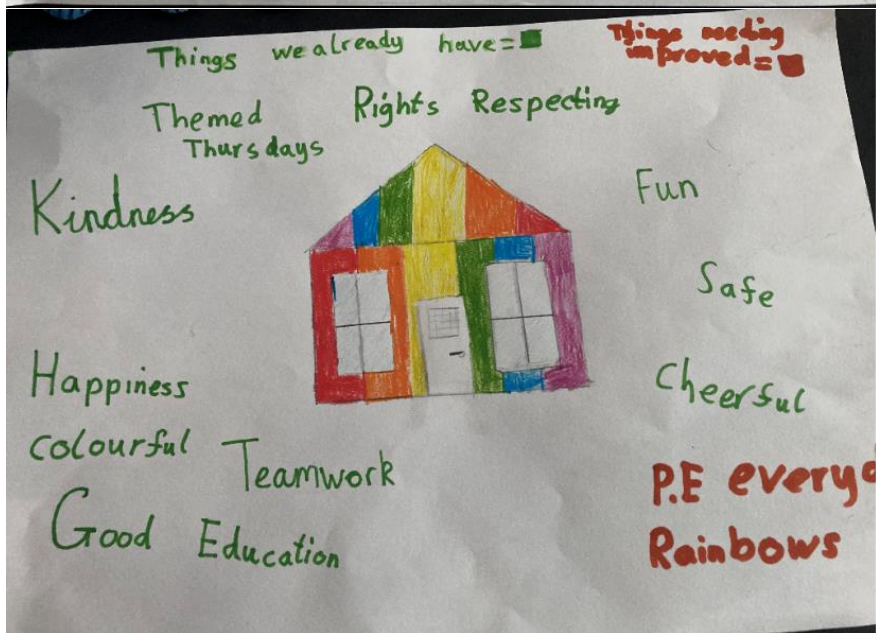 Things we already have=
Things needing
improved=
Themed
Thursdays
Rights Respecting
Kindness
Fun
Safe
Happiness
Cheerful
colourful
Teamwork
P.E everyd
Good Education
Rainbows